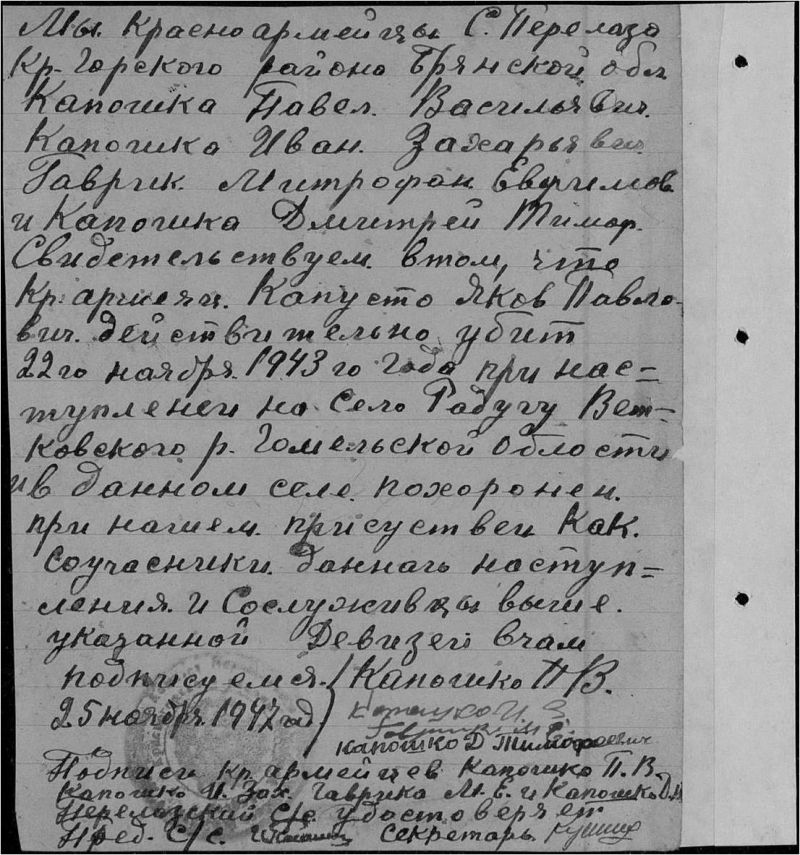 Мы Красноармейцы С. Перелаза
Кр-Горского района Брянской обл
Капошка Павел Васильявич.
Капошко Иван. Захарьявич
Гаврик. Митрофан Евфимов
и Капошка Дмитрей Тимор.
Свидетельствуем втом, что
Кр. армеяц. Капусто Яков Павло-
вич. действительно убит
22го ноября 1943го года при нас=
туплении на село Радугу Вет=
ковского р. Гомельской области
ив данном селе похоронен.
при нашем присуствеи Как.
соучасники даннагь наступ=
ления и Сослуживцы выше.
указанной Девизеи вчам
подписуемся. Капошко ПВ.
25 ноября 1947 год Капошко И З
Гаврик М Е
Капошко Д Тимофоевич
Подписи кр армейцев Капошко П.В.
Капошко И. Зах. Гаврика М. Е. и Капошко Д.М
Перелазский С/с удостоверяет
Пред. С/с. секретарь